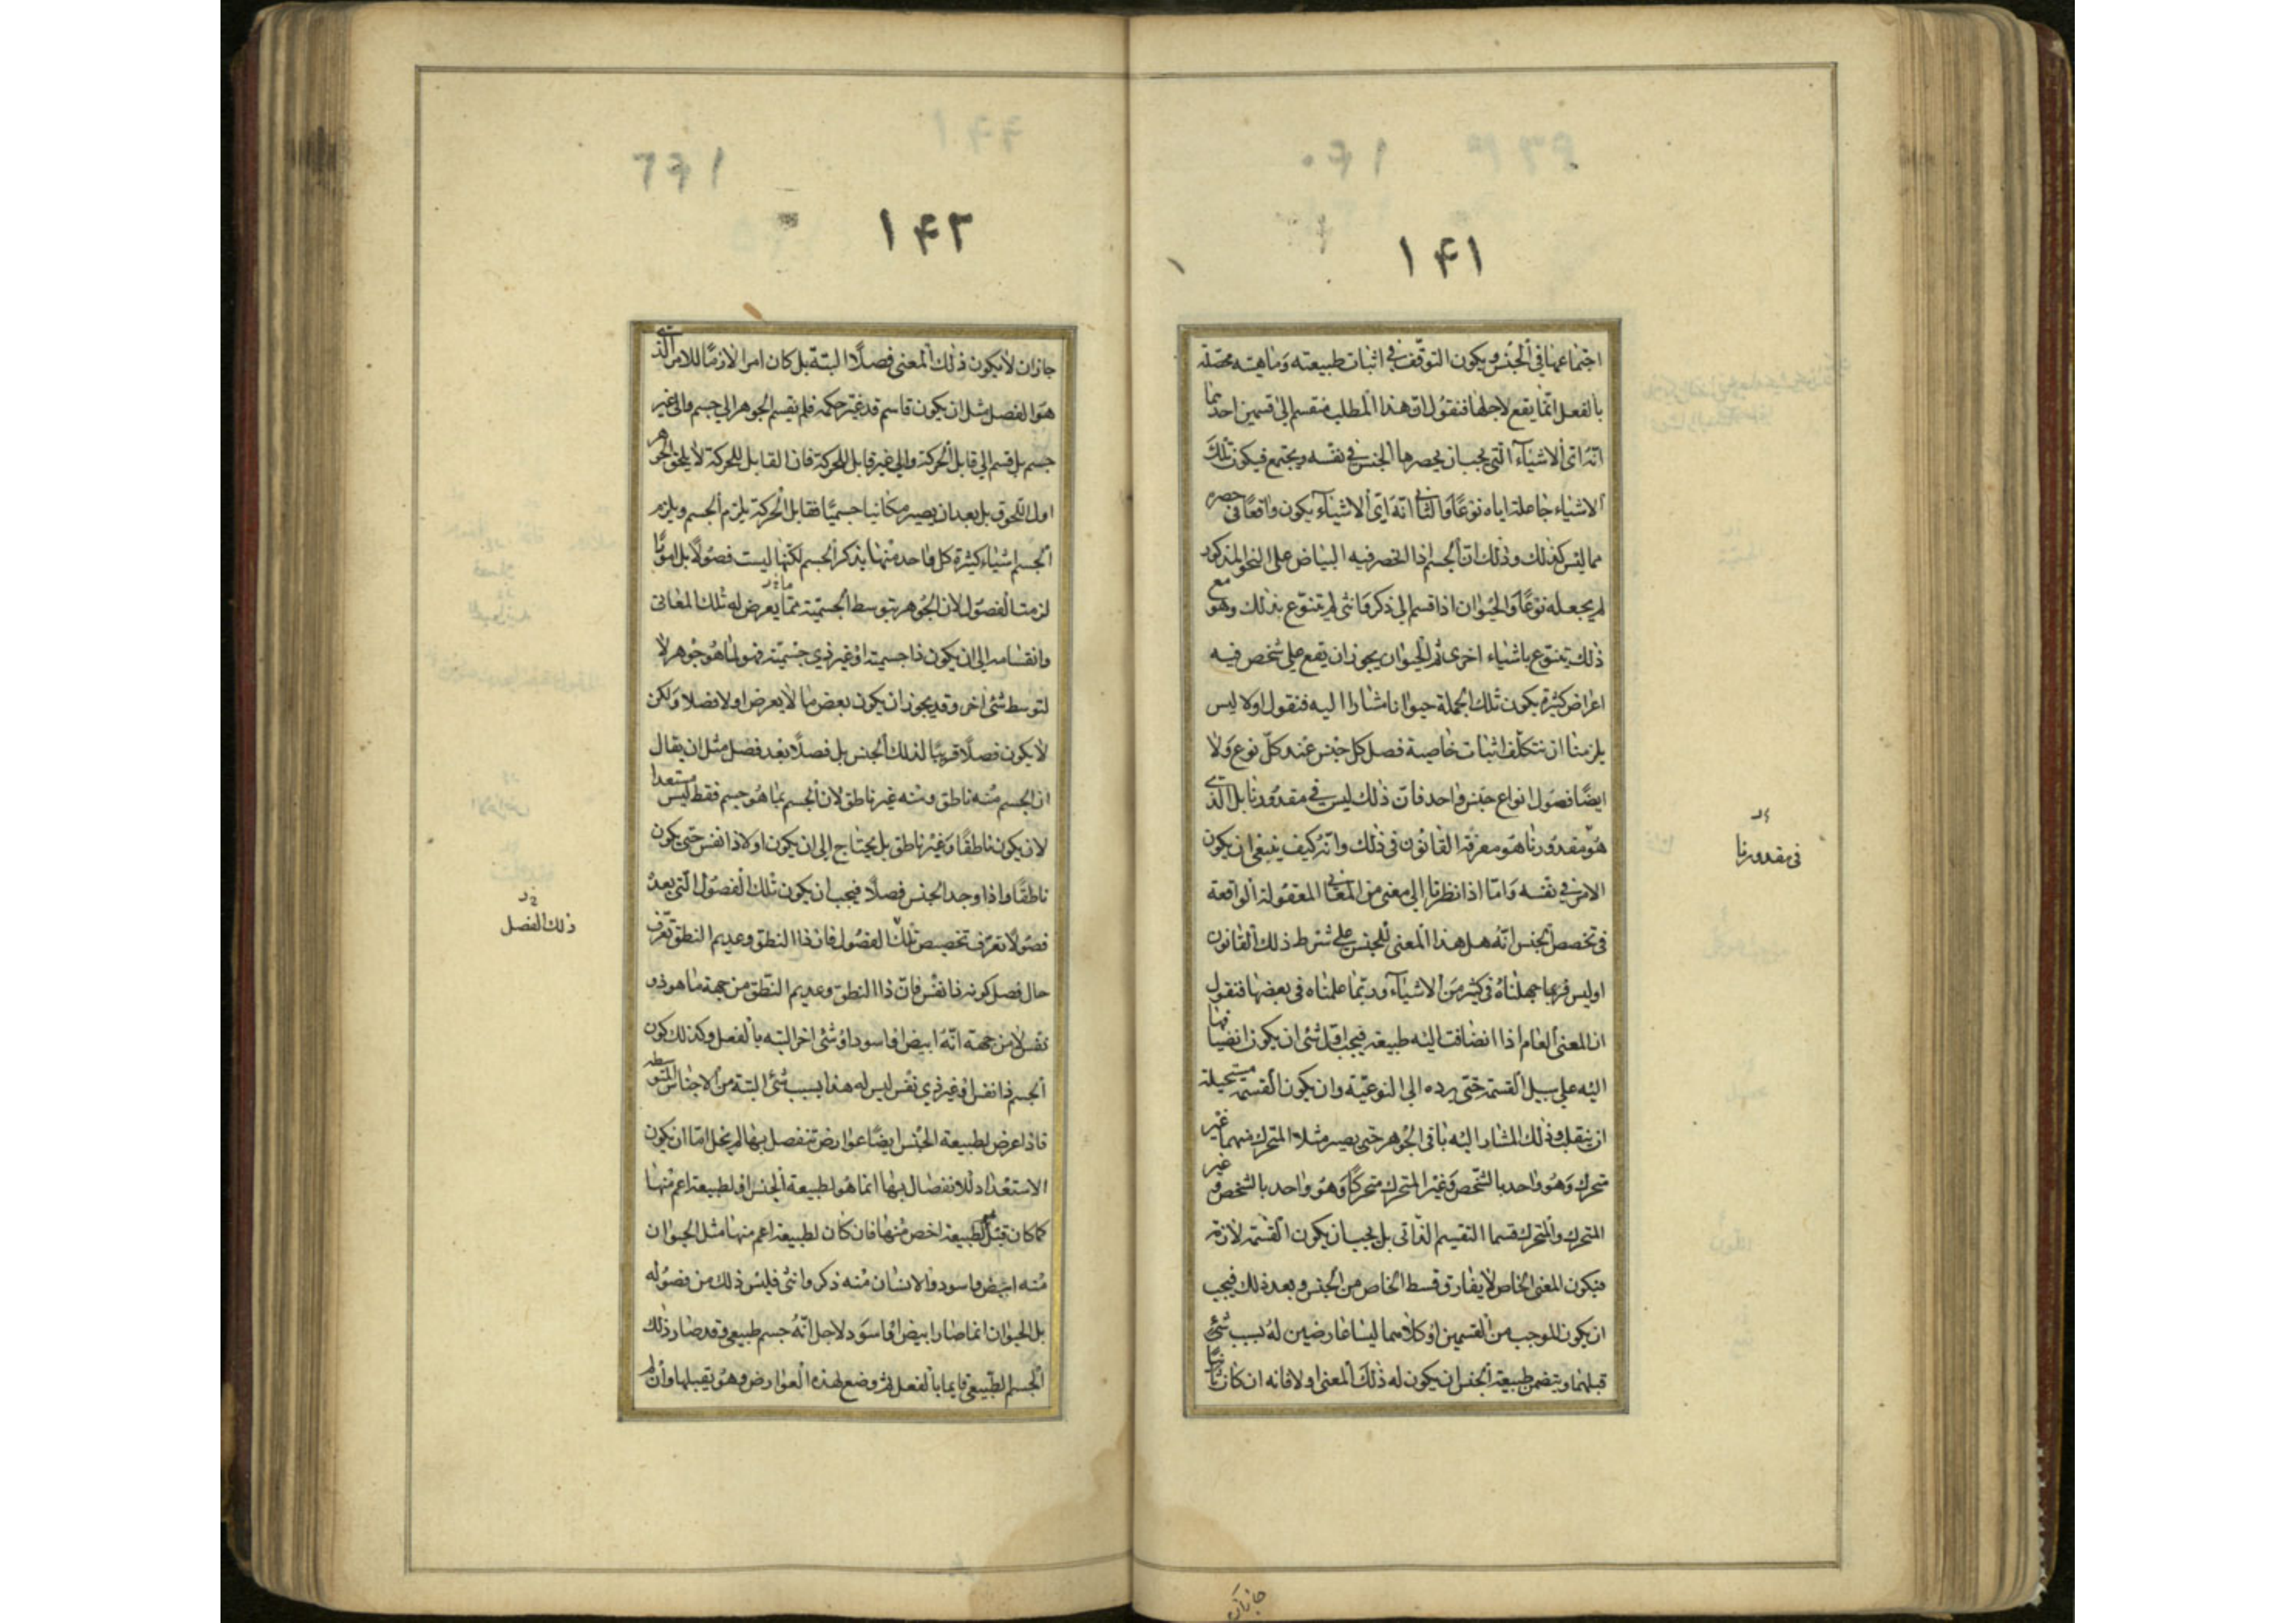 ۱۴۱
اجتماعها في الجنس ويكون التوقف في اثبات طبيعته وماهيته محصلة
بالفعل انما يقع لاجلها فنقول ان هذا المطلب منقسم الى قسمين احدهما
انه اي الاشياء التي يجب ان يحصرها الجنس في نفسه ويجتمع فيكون تلك
الاشياء جاعلة اياه نوعا والثاني انه اي الاشياء يكون واقعا في حصره
مما ليس كذلك وذلك ان الجسم اذا انحصر فيه البياض على النحو المذكور
لم يجعله نوعا والحيوان اذا قسم الى ذكر وانثى لم تنوع بذلك وهو مع
ذلك يتنوع باشياء اخرى ثم الحيوان يجوز ان يقع على شخص فيه
اعراض كثيرة يكون تلك الجملة حيوانا مشارا اليه فنقول اولا ليس
يلزمنا ان نتكلف اثبات خاصية فصل كل جنس عند كل نوع ولا
ايضا فصول انواع جنس واحد فان ذلك ليس في مقدورنا بل الذي
هو مقدورنا هو معرفة القانون في ذلك وانه كيف ينبغي ان يكون
الامر في نفسه واما اذا نظرنا الى معنى من المعاني المعقولة الواقعة
في تخصص الجنس انه هل هذا المعنى للجنس على شرط ذلك القانون
او ليس فربما جهلناه في كثير من الاشياء وربما علمناه في بعضها فنقول
ان المعنى العام اذا انضافت اليه طبيعة فيجب اول شئ ان يكون انضيافها
اليه على سبيل القسمة حتى يرده الى النوعية وان يكون القسمة مستحيلة
ان ينقلب وذلك المشار اليه باقي الجوهر حتى يصير مثلا المتحرك منهما غير
متحرك وهو واحد بالشخص وغير المتحرك متحركا وهو واحد بالشخص و غير
المتحرك والمتحرك قسما التقسيم الذاتي بل يجب ان يكون القسمة لازمة
فيكون المعنى الخاص لا يفارق قسط الخاص من الجنس وبعد ذلك فيجب
ان يكون الموجب من القسمين او كلاهما ليسا عارضين له بسبب شئ
قبلهما ويتضمن طبيعة الجنس ان يكون له ذلك المعنى اولا فانه ان كان ثانيا
في مقدورنا
۱۴۲
جاز ان لا يكون ذلك المعنى فصلا البتة بل كان امرا لازما للامر الذي
هو الفصل مثل ان يكون قاسم قد غير حكمه فلم يقسم الجوهر الى جسم والى غير
جسم بل قسم الى قابل الحركة والى غير قابل للحركة فان القابل للحركة لا يلحق الجوهر
اول اللحوق بل بعد ان يصير مكانيا جسميا فقابل الحركة يلزم الجسم ويلزم
الجسم اشياء كثيرة كل واحد منها يذكر الجسم لكنها ليست فصولا بل امورا
لزمت الفصول لان الجوهر بتوسط الجسمية مما يعرض له تلك المعاني
وانقسامه الى ان يكون ذا جسمية او غير ذي جسمية فهو لما هو جوهر لا
لتوسط شئ اخر وقد يجوز ان يكون بعض ما لا يعرض اولا فصلا ولكن
لا يكون فصلا قريبا لذلك الجنس بل فصلا بعد فصل مثل ان يقال
ان الجسم منه ناطق ومنه غير ناطق لان الجسم بما هو جسم فقط ليس مستعدا
لان يكون ناطقا وغير ناطق بل يحتاج الى ان يكون اولا ذا نفس حتى يكون
ناطقا واذا وجد الجنس فصلا فيجب ان يكون تلك الفصول التي بعده
فصولا تعرف تخصيص تلك الفصول فان ذا النطق وعديم النطق تعرف
حال فصل كونه ذا نفس فان ذا النطق وعديم النطق من جهة ما هو ذو
نفس لا من جهة انه ابيض او اسود او شئ اخر البتة بالفعل وكذلك كون
الجسم ذا نفس او غير ذي نفس ليس له هذا بسبب شئ البتة من الاجناس المتوسطة
فاذا عرض لطبيعة الجنس ايضا عوارض تنفصل بها لم يخل اما ان يكون
الاستعداد للانفصال بها انما هو لطبيعة الجنس او لطبيعة اعم منها
كما كان قبل لطبيعة اخص منها فان كان لطبيعة اعم منها مثل الحيوان
منه ابيض واسود والانسان منه ذكر وانثى فليس ذلك من فصوله
بل الحيوان انما صار ابيض او اسود لاجل انه جسم طبيعي وقد صار ذلك
الجسم الطبيعي قايما بالفعل ثم وضع لهذه العوارض وهو يقبلها وان لم
ذلك الفصل
جازان